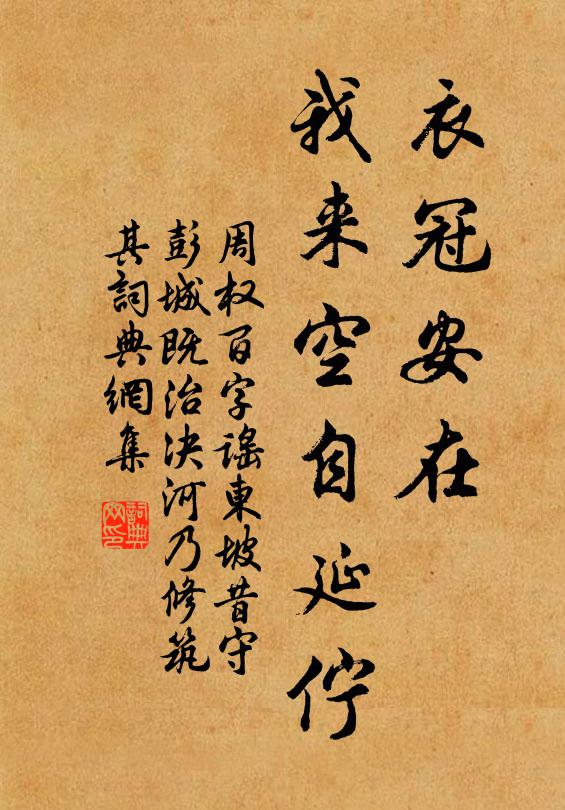 衣冠安在
我来空自延伫
周权百字謠東坡昔守
彭城既治决河乃修筑
其詞典網集
詞典網印